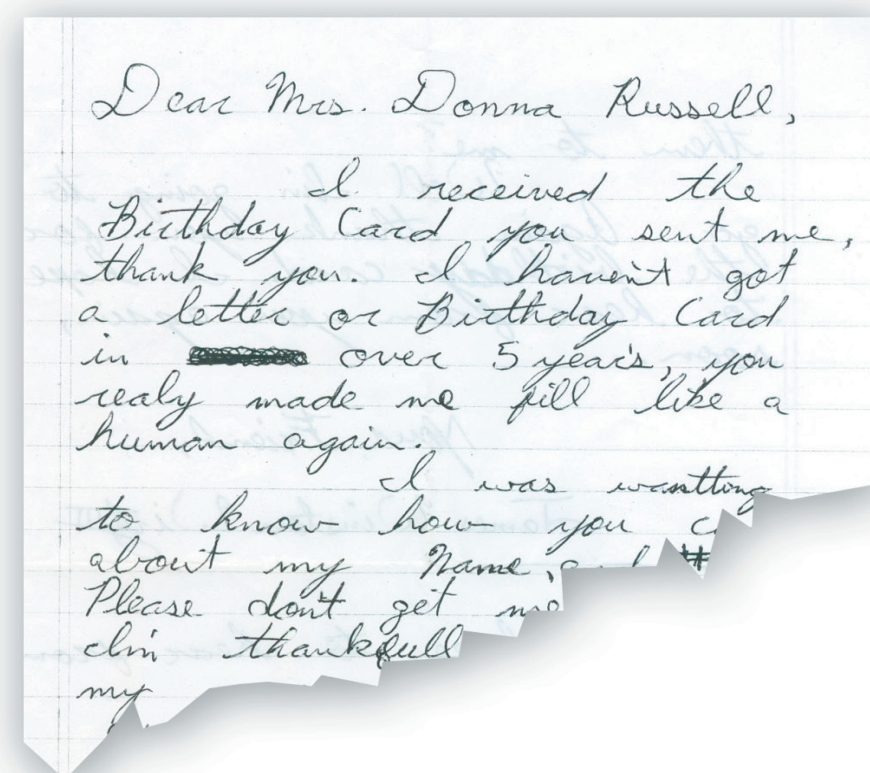 Dear Mrs. Donna Russell,
I received the
Birthday Card you sent me,
thank you. I haven't got
a letter or Birthday Card
in over 5 year's, you
realy made me fill like a
human again.
I was wantting
to know how you
about my Name,
#
Please don't get me
I'm thankfull
my